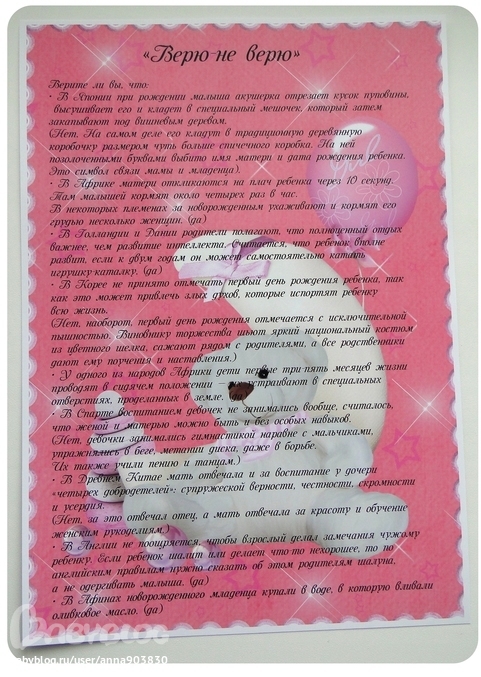 «Верю-не верю»
Верите ли вы, что:
• В Японии при рождении малыша акушерка отрезает кусок пуповины,
высушивает его и кладет в специальный мешочек, который затем
закапывают под вишневым деревом.
(Нет. На самом деле его кладут в традиционную деревянную
коробочку размером чуть больше спичечного коробка. На ней
позолоченными буквами выбито имя матери и дата рождения ребенка.
Это символ связи мамы и младенца).
• В Африке матери откликаются на плач ребенка через 10 секунд.
Там малышей кормят около четырех раз в час.
В некоторых племенах за новорожденным ухаживают и кормят его
грудью несколько женщин. (да)
• В Голландии и Дании родители полагают, что полноценный отдых
важнее, чем развитие интеллекта. Считается, что ребенок вполне
развит, если к двум годам он может самостоятельно катать
игрушку-каталку. (да)
• В Корее не принято отмечать первый день рождения ребенка, так
как это может привлечь злых духов, которые испортят ребенку
всю жизнь.
(Нет, наоборот, первый день рождения отмечается с исключительной
пышностью. Виновнику торжества шьют яркий национальный костюм
из цветного шелка, сажают рядом с родителями, а все родственники
дают ему поучения и наставления.)
• У одного из народов Африки дети первые три-пять месяцев жизни
проводят в сидячем положении – устраивают в специальных
отверстиях, проделанных в земле.
• В Спарте воспитанием девочек не занимались вообще, считалось,
что женой и матерью можно быть и без особых навыков.
(Нет, девочки занимались гимнастикой наравне с мальчиками,
упражнялись в беге, метании диска, даже в борьбе.
Их также учили пению и танцам.)
• В Древнем Китае мать отвечала и за воспитание у дочери
«четырех добродетелей»: супружеской верности, честности, скромности
и усердия.
(Нет, за это отвечал отец, а мать отвечала за красоту и обучение
женским рукоделиям.)
• В Англии не поощряется, чтобы взрослый делал замечания чужому
ребенку. Если ребенок шалит или делает что-то нехорошее, то по
английским правилам нужно сказать об этом родителям шалуна,
а не одергивать малыша. (да)
• В Афинах новорожденного младенца купали в воде, в которую вливали
оливковое масло. (да)
babyblog.ru/user/anna903830